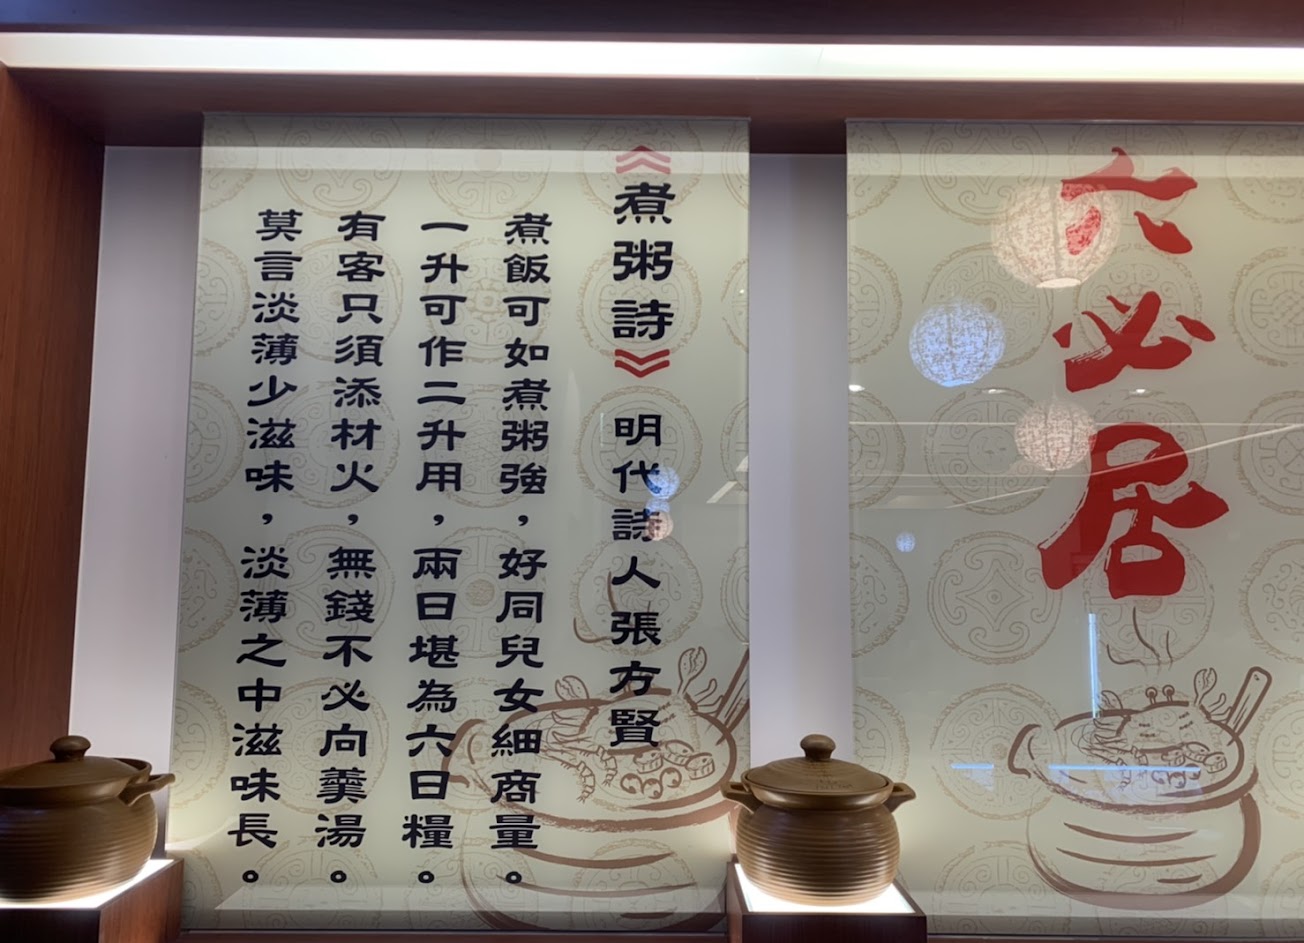 六必居
《煮粥詩》 明代詩人張方賢
煮飯可如煮粥強，好同兒女細商量。
一升可作二升用，兩日堪為六日糧。
有客只須添材火，無錢不必向羹湯。
莫言淡薄少滋味，淡薄之中滋味長。